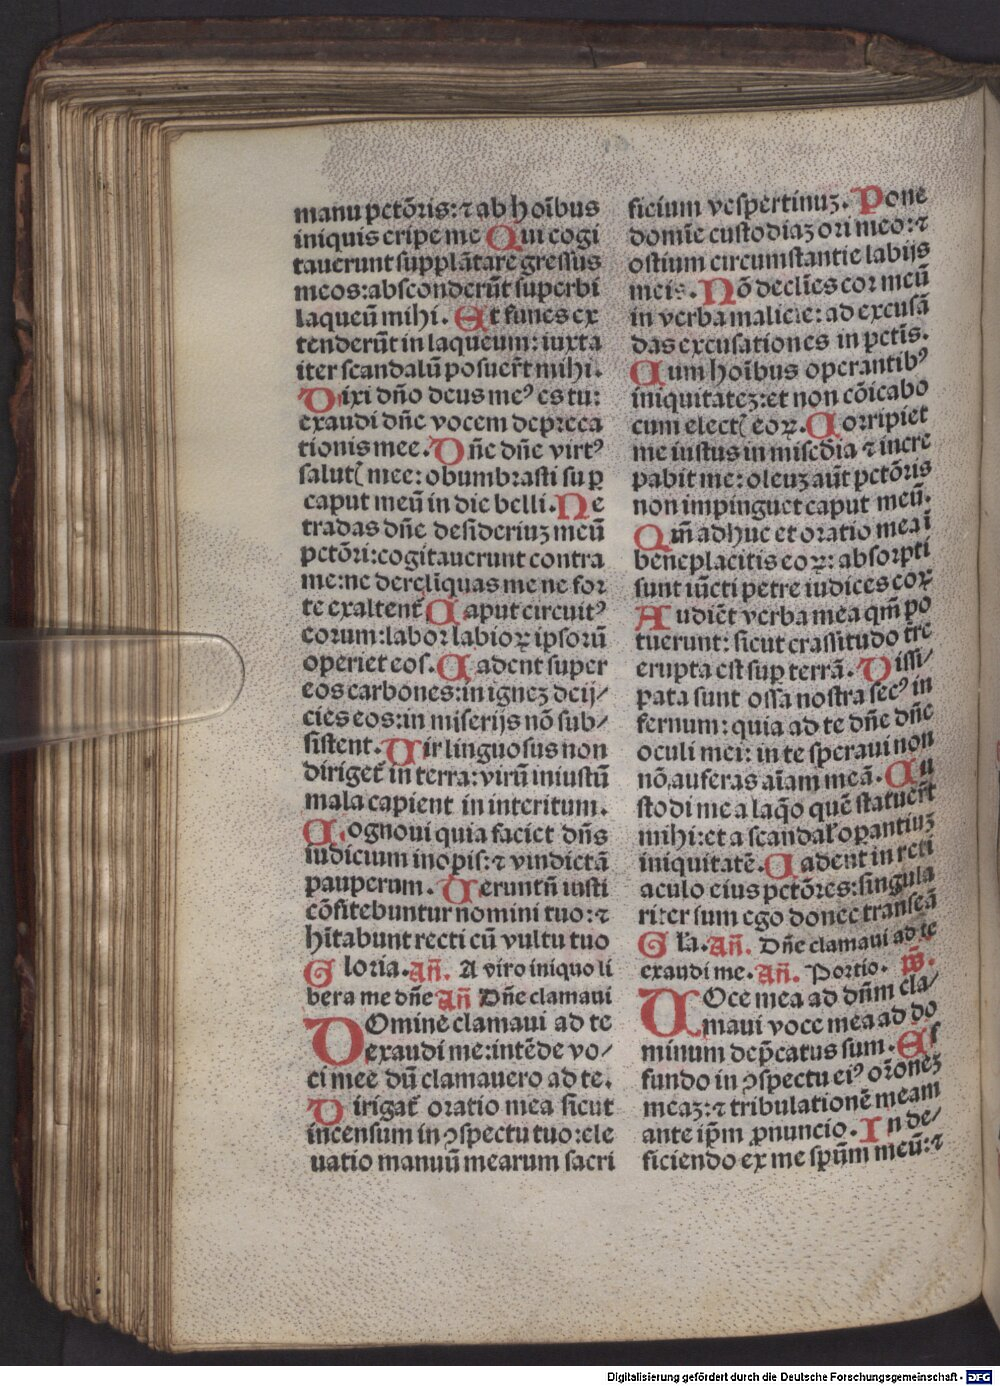 manu pctõris: ⁊ ab hoĩbus
iniquis eripe me Qui cogi
tauerunt supplãtare gressus
meos: absconderũt superbi
laqueũ mihi. Et funes ex
tenderũt in laqueum: iuxta
iter scandalũ posuer̃t mihi.
Dixi dño deus meꝰ es tu:
exaudi dñe vocem depreca
tionis mee. Dñe dñe virtꝰ
salutꝭ mee: obumbrasti su ꝑ
caput meũ in die belli. Ne
tradas dñe desideriuꝫ meũ
pctõri: cogitauerunt contra
me: ne derelĩquas me ne for
te exaltent̃ Caput circuitꝰ
eorum: labor labioꝝ ipsorũ
operiet eos. Cadent super
eos carbones: in igneꝫ deij/
cies eos: in miserijs nõ sub/
sistent. Uir linguosus non
diriget̃ in terra: virũ iniustũ
mala capient in interitum.
Cognoui quia faciet dñs
iudicium inopis: ⁊ vindictã
pauperum. Ueruntñ iusti
cõfitebuntur nomini tuo: ⁊
hĩtabunt recti cũ vultu tuo
Gloria. Añ. A viro iniquo li
bera me dñe Añ Dñe clamaui
DOmine clamaui ad te
exaudi me: intẽde vo/
ci mee dũ clamauero ad te.
Dirigat̃ oratio mea sicut
incensum in ꝯspectu tuo: ele
uatio manuũ mearum sacri
ficium vespertinuꝫ. Pone
domĩe custodiaꝫ ori meo: ⁊
ostium circumstantie labijs
meis. Nõ declĩes cor meũ
in verba malicie: ad excusã
das excusationes in pctĩs.
Cum hoĩbus operantibꝰ
iniquitateꝫ: et non cõicabo
cum electꝭ eoꝝ. Corripiet
me iustus in misẽdia ⁊ incre
pabit me: oleuꝫ aũt pctõris
non impinguet caput meũ.
Qm̃ adhuc et oratio mea ĩ
beneplacitis eoꝝ: absorpti
sunt iũcti petre iudices eoꝝ
Audiẽt verba mea qm̃ po
tuerunt: sicut crassitudo tr̃e
erupta est suꝑ terrã. Dissi/
pata sunt ossa nostra secꝰ in
fernum: quia ad te dñe dñe
oculi mei: in te speraui non
nõ auferas aĩam meã. Cu
stodi me a laq̃o quẽ statuer̃t
mihi: et a scandal̃ oꝑantiuꝫ
iniquitatẽ. Cadent in reti
aculo eius pctõres: singula
riter sum ego donec transeã
Gl̃a. Añ. Dñe clamaui ad te
exaudi me. Añ. Portio. p̃s.
UOce mea ad dñm cla/
maui voce mea ad do
minum dep̃catus sum. Ef
fundo in ꝯspectu eiꝰ or̃oneꝫ
meaꝫ: ⁊ tribulationẽ meam
ante ip̃m ꝓnuncio. In de/
ficiendo ex me sp̃um meũ: ⁊
Digitalisierung gefördert durch die Deutsche Forschungsgemeinschaft - DFG